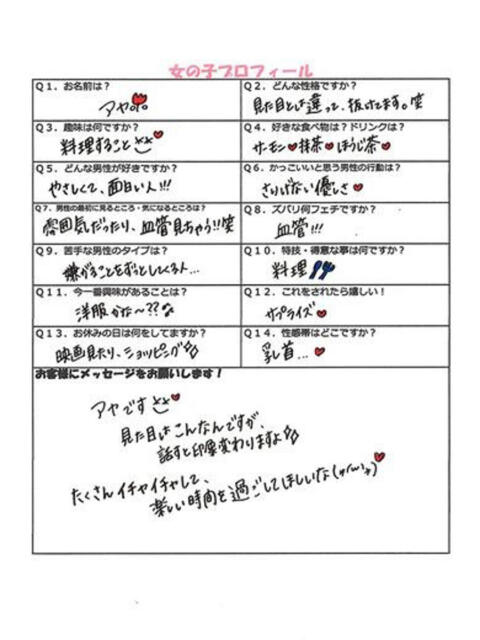 女の子プロフィール
Q1. お名前は?
アヤ
Q2. どんな性格ですか?
見た目とは違って、抜けてます。笑
Q3. 趣味は何ですか?
料理すること
Q4. 好きな食べ物は?ドリンクは?
サーモン♥抹茶♥ほうじ茶♥
Q5. どんな男性が好きですか?
やさしくて、面白い人!!!
Q6. かっこいいと思う男性の行動は?
さりげない優しさ♥
Q7. 男性の最初に見るところ・気になるところは?
雰囲気だったり、血管見ちゃう!!笑
Q8. ズバリ何フェチですか?
血管!!!
Q9. 苦手な男性のタイプは?
嫌がることをずっとしてくる人...
Q10. 特技・得意な事は何ですか?
料理
Q11. 今一番興味があることは?
洋服かな〜??
Q12. これをされたら嬉しい!
サプライズ♥
Q13. お休みの日は何をしてますか?
映画見たり、ショッピング
Q14. 性感帯はどこですか?
乳首...♥
お客様にメッセージをお願いします!
アヤです
見た目はこんなんですが、
話すと印象変わりますよ
たくさんイチャイチャして、
楽しい時間を過ごしてほしいな